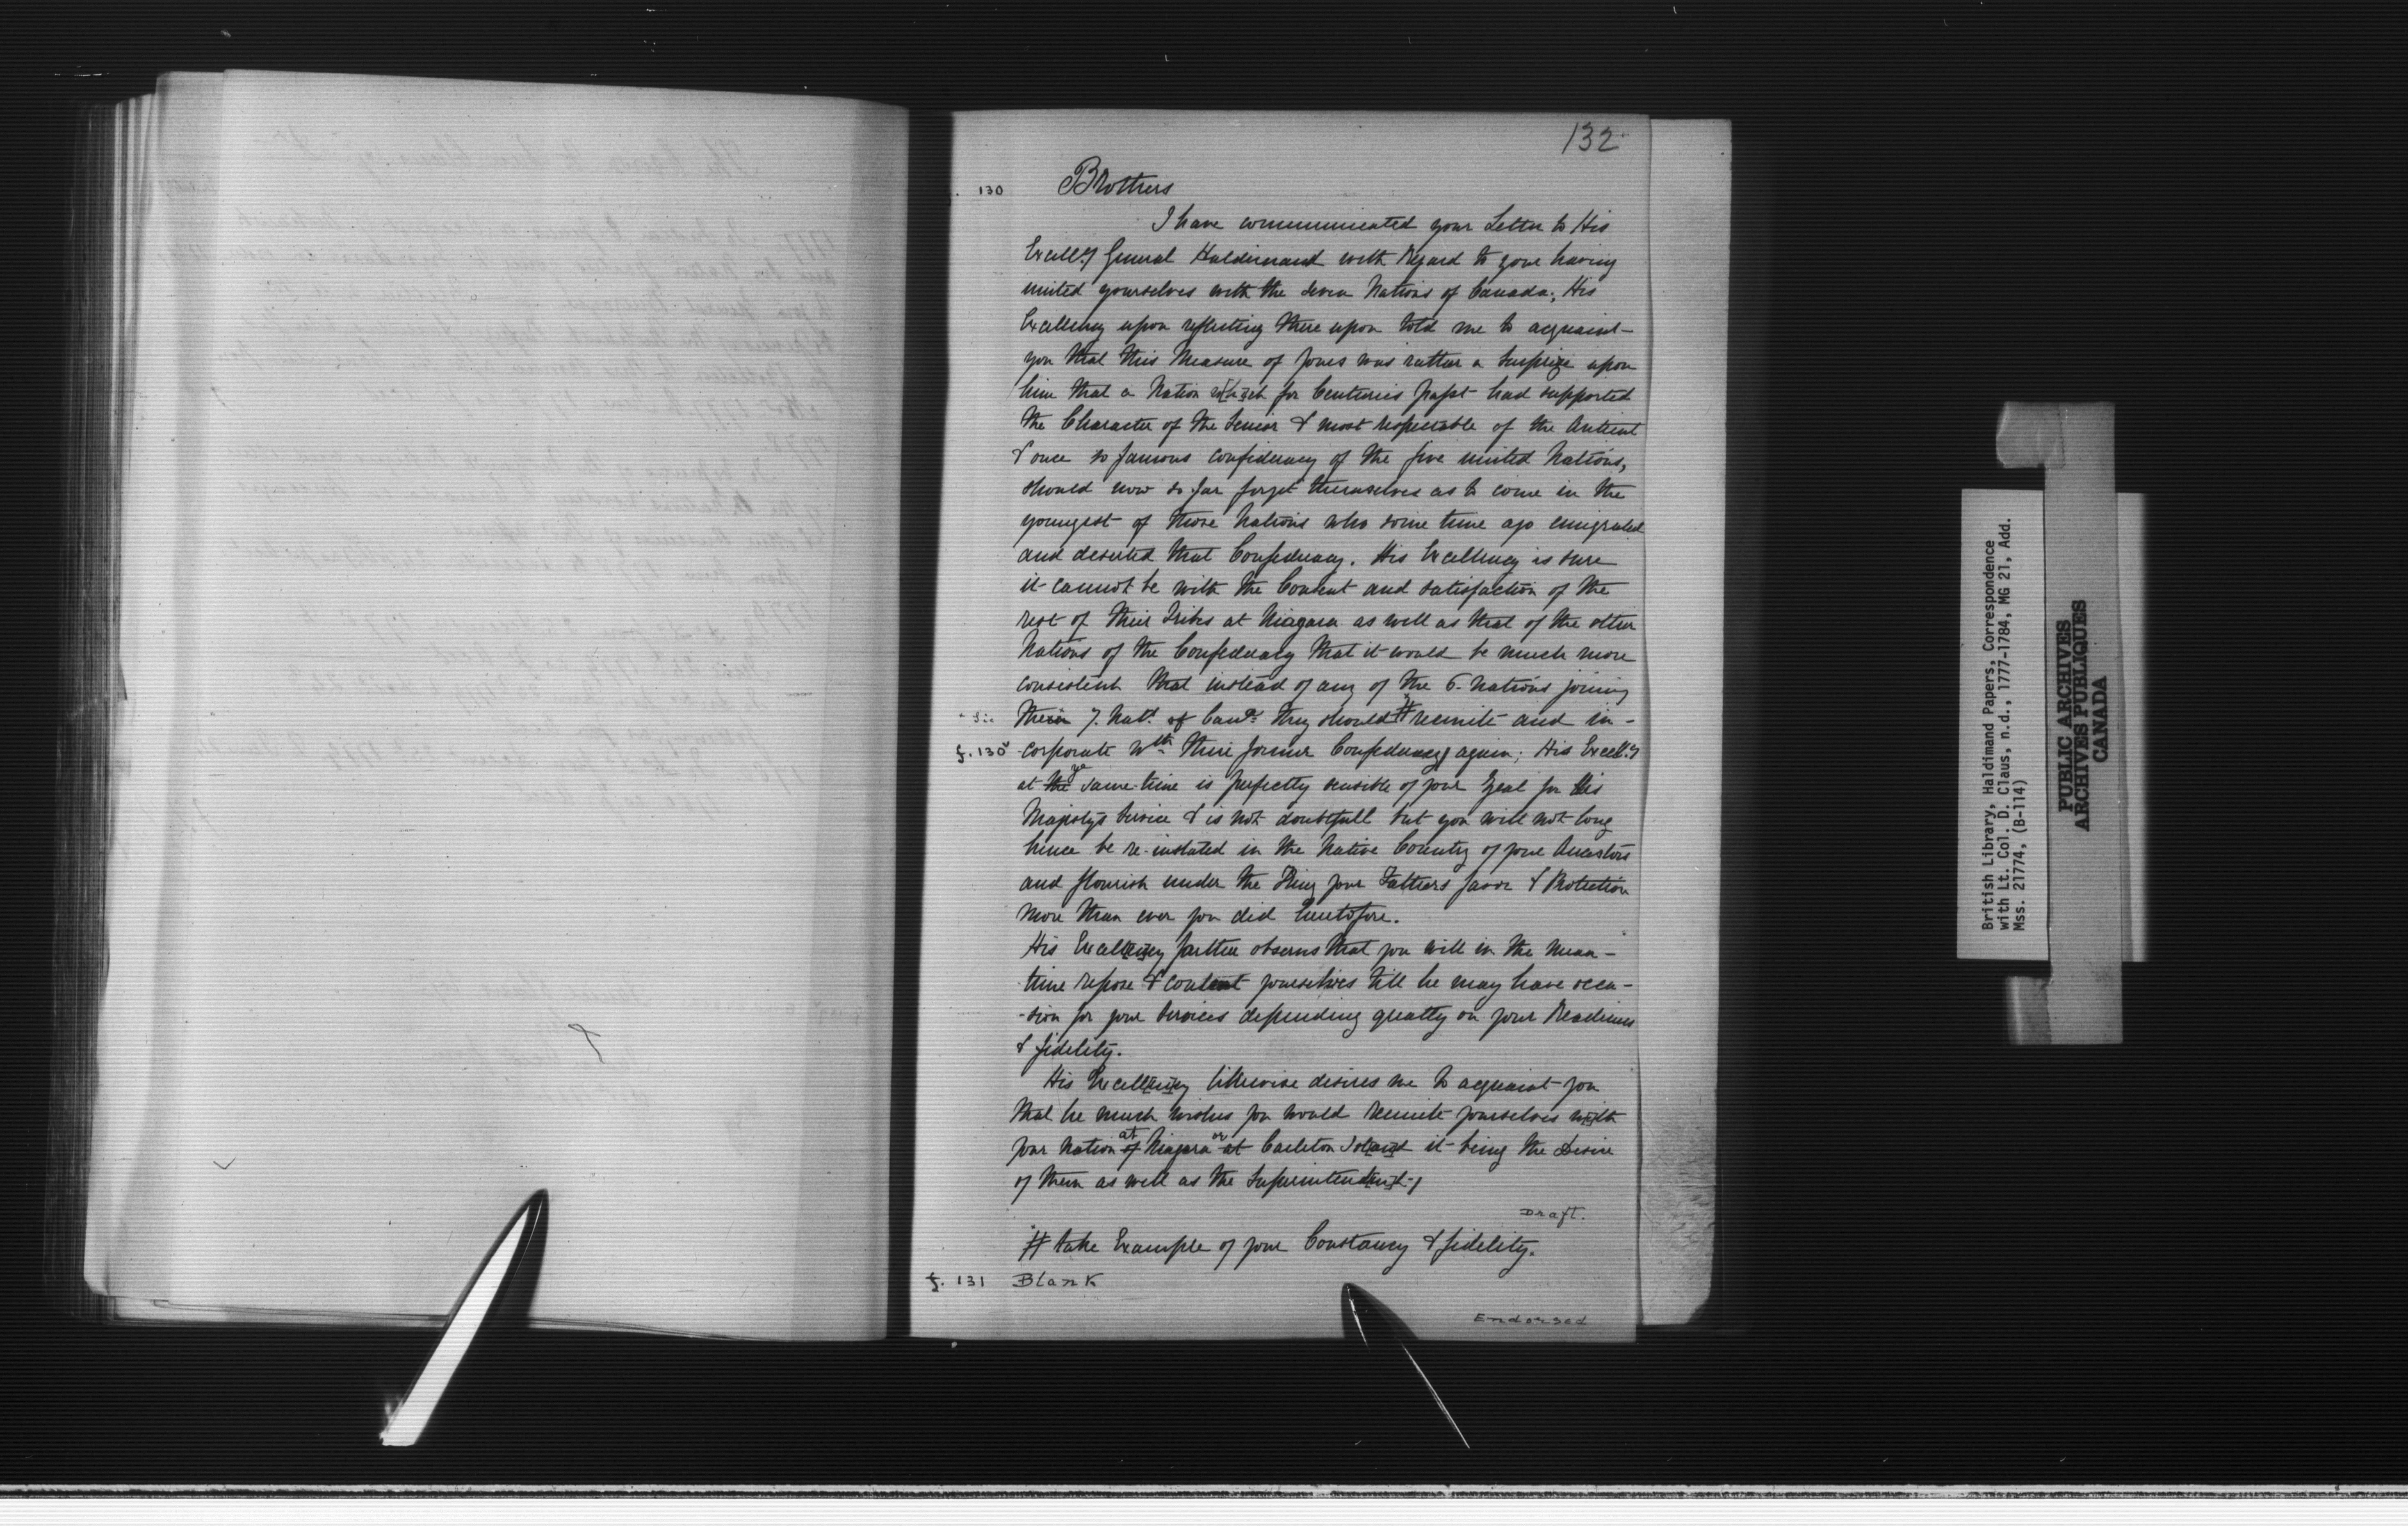 132
f. 130 Brothers
I have communicated your Letter to His
Excell:y General Haldimand with Regard to your having
united yourselves with the Seven Nations of Canada; His
Excellency upon reflecting there upon told me to acquaint
you that this Measure of yours was rather a Surprize upon
him that a Nation w[hi]ch for Centuries past had supported
the Character of the Senior & most respectable of the Antient
& once so famous confederacy of the five united Nations,
should now so far forget themselves as to come in the
youngest of those Nations who some time ago emigrated
and deserted that Confederacy. His Excellency is sure
it cannot be with the Consent and satisfaction of the
rest of their Tribes at Niagara as well as that of the other
Nations of the Confederacy that it would be much more
consistent that instead of any of the 6. Nations joining
Sic them 7. Nat.s of Can.a they should # reunite and in-
f. 130v -corporate Wth their former Confederacy again; His Excell:y
at the ye same time is perfectly sensible of your Zeal for His
Majesty's Service & is not doubtfull but you will not long
hence be re-instated in the Native Country of your Ancestors
and flourish under the King your Fathers favor & Protection
more than ever you did heretofore.
His Excell[en]cy farther observes that you will in the mean-
time repose & content yourselves till he may have occa-
-sion for your Services depending greatly on your Readiness
& fidelity.
His Excell[en]cy likewise desires me to acquaint you
that he much wishes you would reunite yourselves w[i]th
your Nation of at Niagara or at Carleton Isl[an]d it being the Desire
of them as well as the Superintend[en]t
Draft.
# take Example of your Constancy & fidelity.
f. 131 Blank
Endorsed
British Library, Haldimand Papers, Correspondence
with Lt. Col. D. Claus, n.d., 1777-1784, MG 21, Add.
Mss. 21774, (B-114)
PUBLIC ARCHIVES
ARCHIVES PUBLIQUES
CANADA